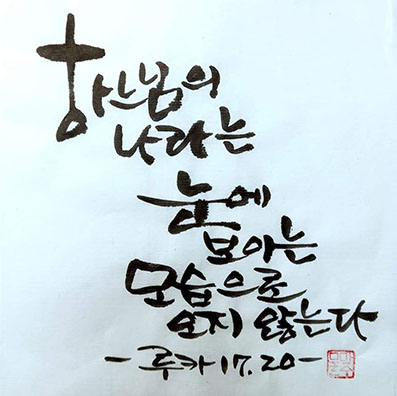 하느님의
나라는
눈에
보이는
모습으로
오지 않는다
- 루카 17.20 -